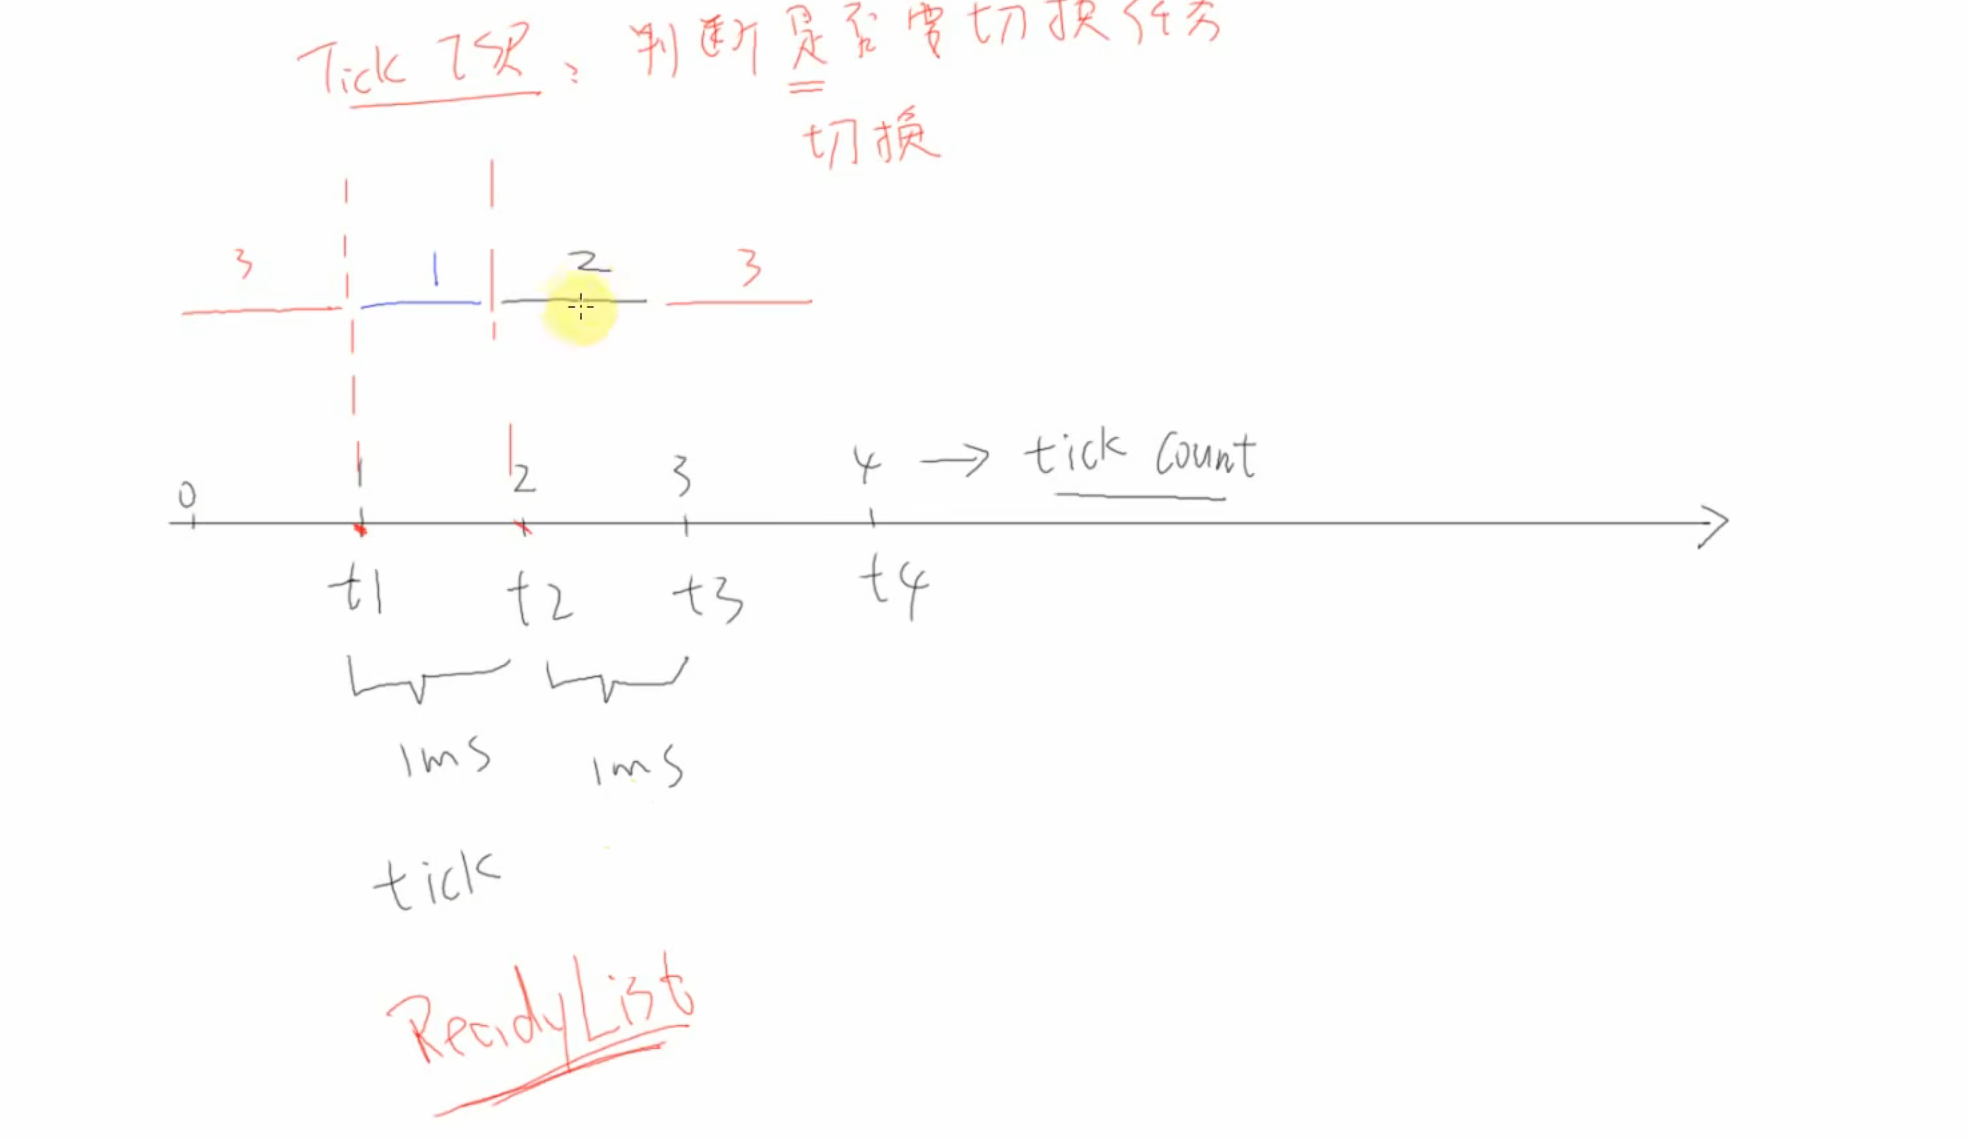 Tick ISR: 判断是否要切换任务
切换
3 1 2 3
0 1 2 3 4 → tick count
t1 t2 t3 t4
1ms 1ms
tick
ReadyList